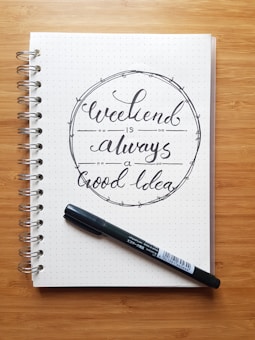 Weekend
is
always
a
Good Idea